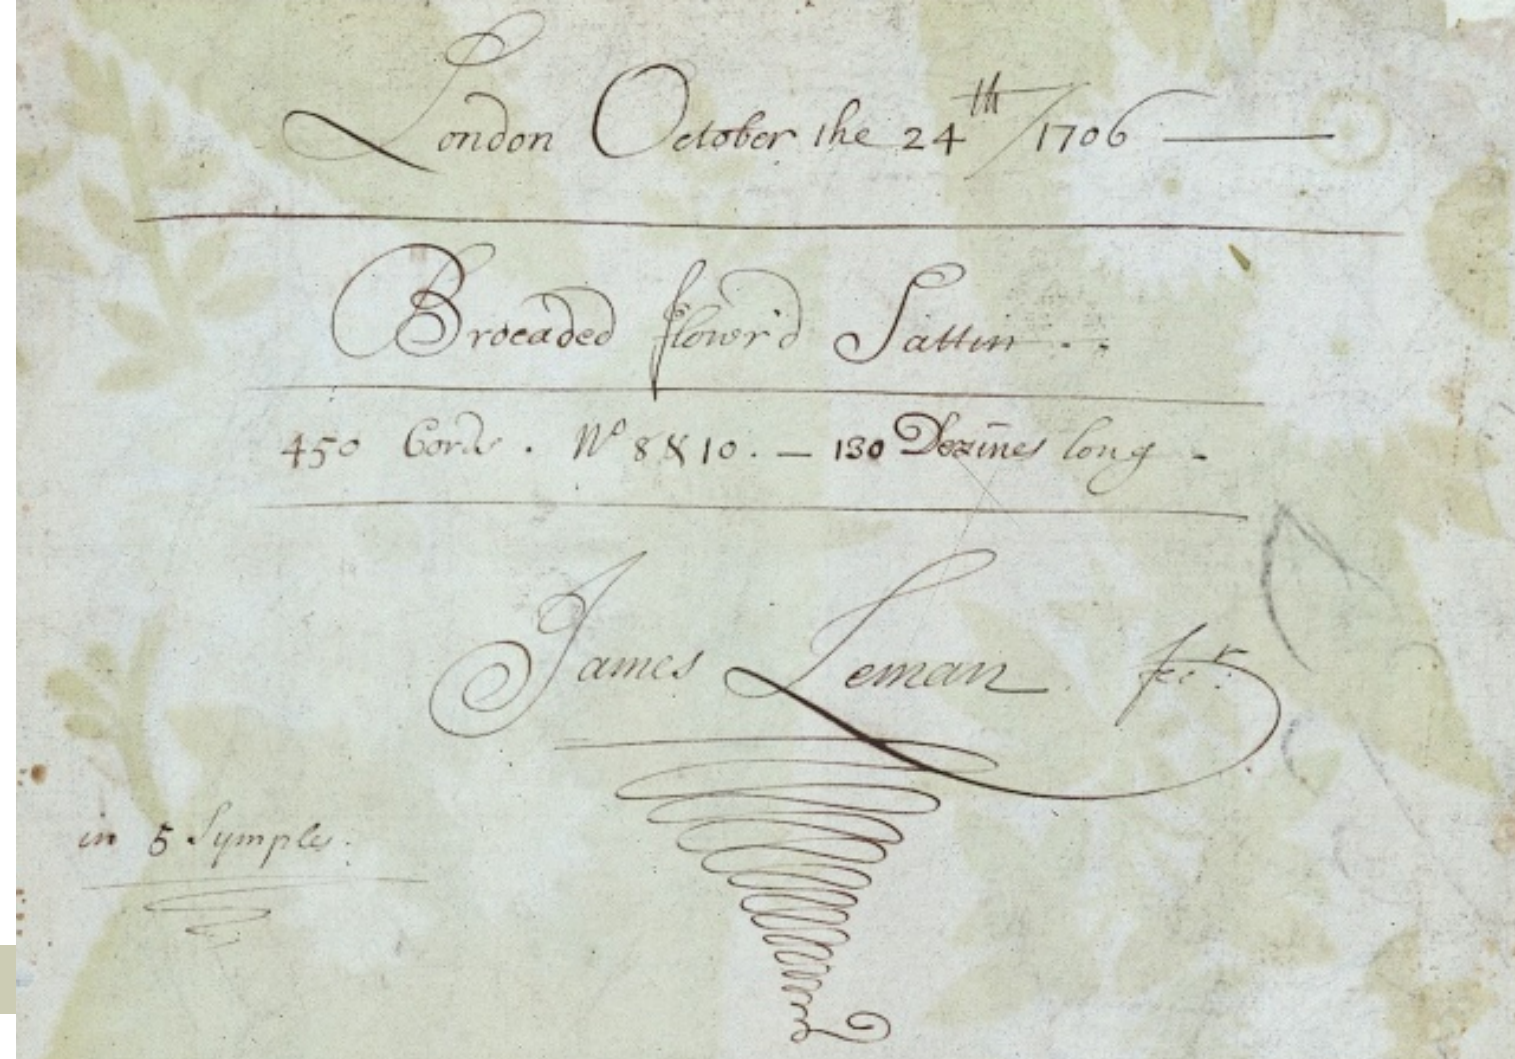 London October the 24th / 1706
Brocaded flower'd Sattin
450 Cords . No 8 & 10 . — 130 Dezines long -
James Leman fect.
in 5 Symples.